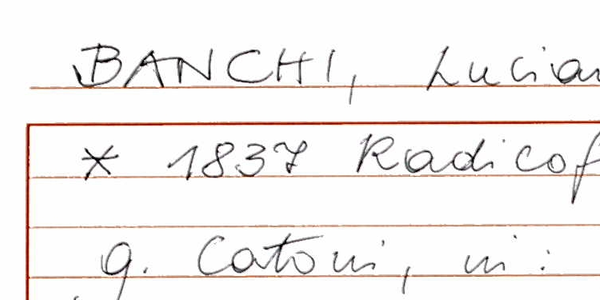 BANCHI, Lucian
* 1837 Radicof
G. Catoni, in: